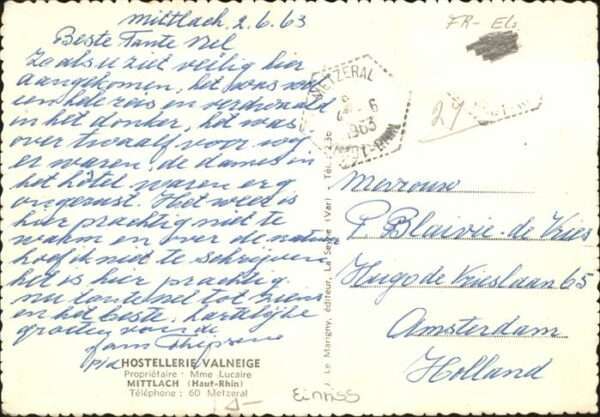 Mittlach 2.6.63
Beste Tante Nel
Zoals u ziet veilig hier
aangekomen, het was wel
een hele reis en verdwaald
in het donker, het was
over twaalf voor wy
er waren, de dames in
het hôtel waren erg
ongerust. Het weer is
hier prachtig niet te
warm en over de natuur
hoef ik niet te schrijven
het is hier prachtig
nu tante nel tot ziens
en het beste. hartelijke
groeten van de
fam
HOSTELLERIE VALNEIGE
Propriétaire : Mme Lucaire
MITTLACH (Haut-Rhin)
Téléphone : 60 Metzeral
J. Le Marigny, éditeur, La Seyne (Var) Tél.
METZERAL
6
1963
HAUT-RHIN
FR- Els
24
Mevrouw
P. Bluivié-de Vries
Hugo de Vrieslaan 65
Amsterdam
Holland